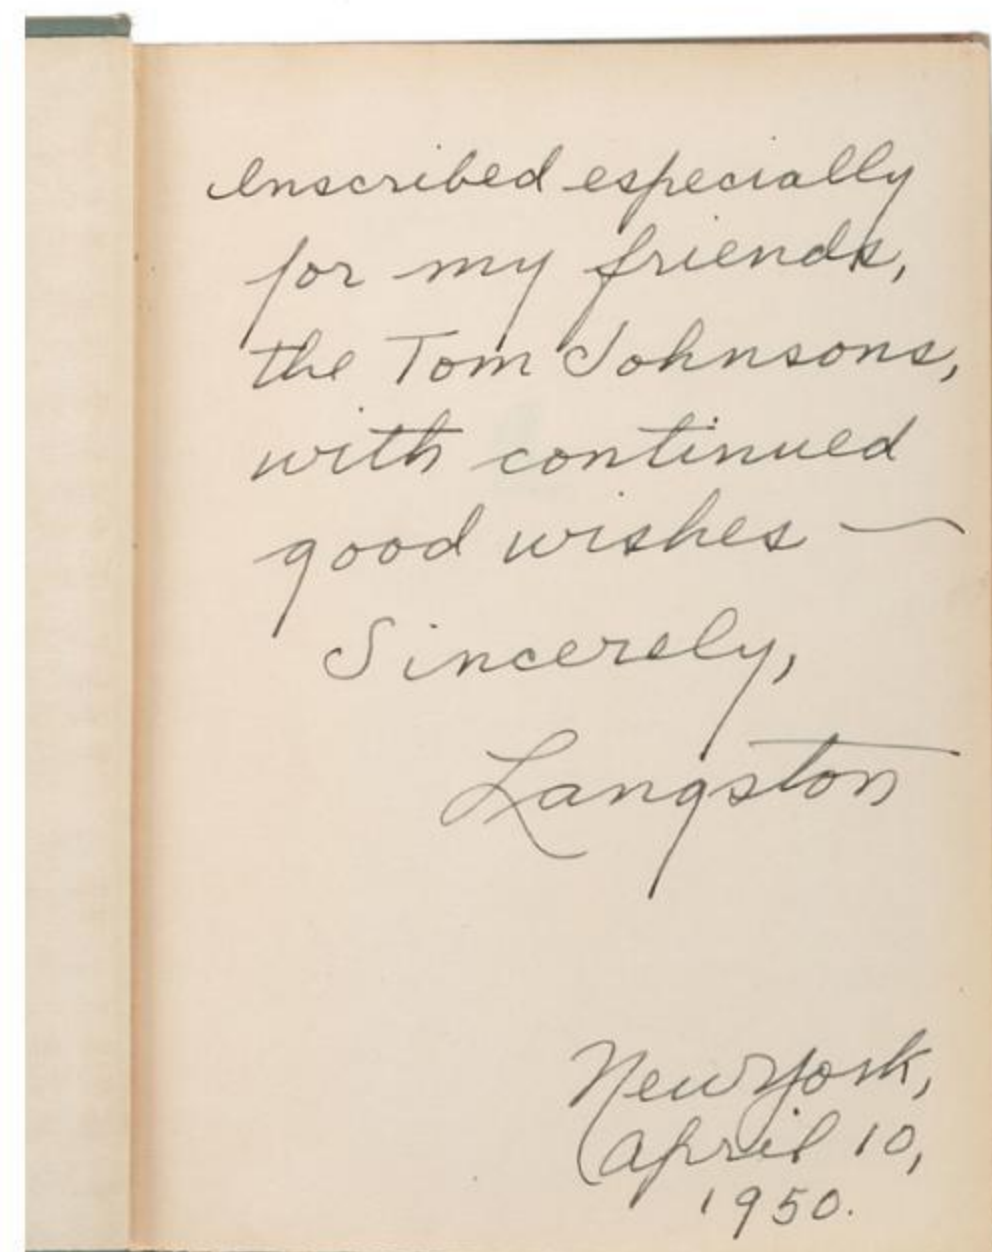 Inscribed especially
for my friends,
the Tom Johnsons,
with continued
good wishes —
Sincerely,
Langston
New York,
April 10,
1950.